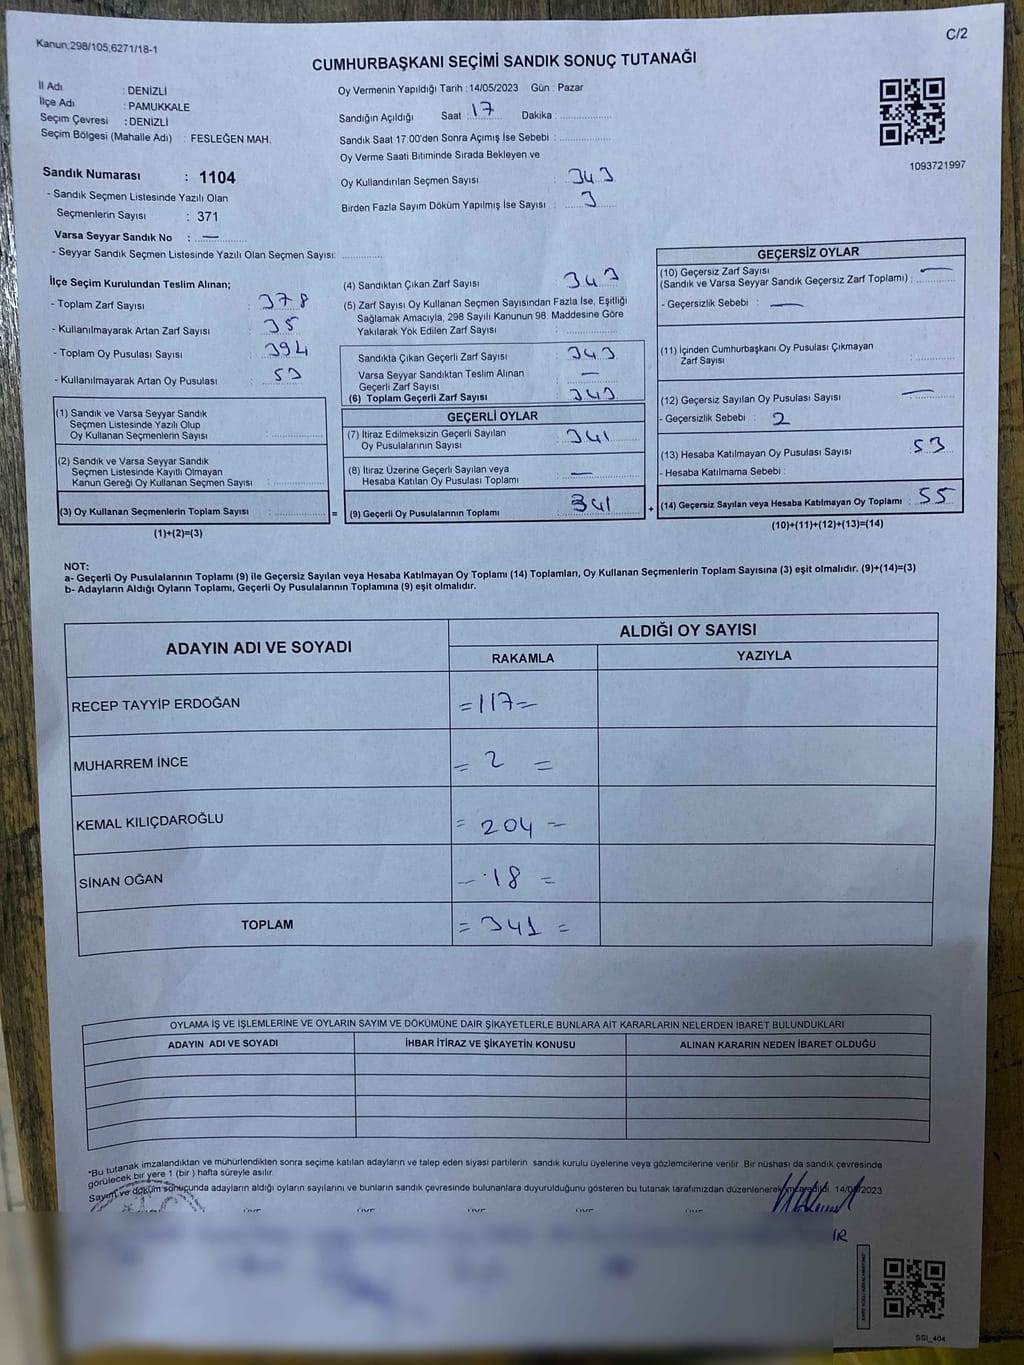 Kanun;298/105;6271/18-1
C/2
CUMHURBAŞKANI SEÇİMİ SANDIK SONUÇ TUTANAĞI
İl Adı : DENİZLİ
İlçe Adı : PAMUKKALE
Seçim Çevresi : DENİZLİ
Seçim Bölgesi (Mahalle Adı) : FESLEĞEN MAH.
Oy Vermenin Yapıldığı Tarih : 14/05/2023 Gün : Pazar
Sandığın Açıldığı Saat 17 Dakika :
Sandık Saat 17.00'den Sonra Açımış İse Sebebi :
Oy Verme Saati Bitiminde Sırada Bekleyen ve
Oy Kullandırılan Seçmen Sayısı : 343
Birden Fazla Sayım Döküm Yapılmış İse Sayısı : 3
1093721997
Sandık Numarası : 1104
- Sandık Seçmen Listesinde Yazılı Olan
Seçmenlerin Sayısı : 371
Varsa Seyyar Sandık No : —
- Seyyar Sandık Seçmen Listesinde Yazılı Olan Seçmen Sayısı:
İlçe Seçim Kurulundan Teslim Alınan;
- Toplam Zarf Sayısı : 378
- Kullanılmayarak Artan Zarf Sayısı : 35
- Toplam Oy Pusulası Sayısı : 394
- Kullanılmayarak Artan Oy Pusulası : 53
(1) Sandık ve Varsa Seyyar Sandık
Seçmen Listesinde Yazılı Olup
Oy Kullanan Seçmenlerin Sayısı :
(2) Sandık ve Varsa Seyyar Sandık
Seçmen Listesinde Kayıtlı Olmayan
Kanun Gereği Oy Kullanan Seçmen Sayısı :
(3) Oy Kullanan Seçmenlerin Toplam Sayısı :
(1)+(2)=(3)
(4) Sandıktan Çıkan Zarf Sayısı : 343
(5) Zarf Sayısı Oy Kullanan Seçmen Sayısından Fazla İse, Eşitliği
Sağlamak Amacıyla, 298 Sayılı Kanunun 98. Maddesine Göre
Yakılarak Yok Edilen Zarf Sayısı :
Sandıkta Çıkan Geçerli Zarf Sayısı : 343
Varsa Seyyar Sandıktan Teslim Alınan
Geçerli Zarf Sayısı : —
(6) Toplam Geçerli Zarf Sayısı : 343
GEÇERLİ OYLAR
(7) İtiraz Edilmeksizin Geçerli Sayılan
Oy Pusulalarının Sayısı : 341
(8) İtiraz Üzerine Geçerli Sayılan veya
Hesaba Katılan Oy Pusulası Toplamı : —
= (9) Geçerli Oy Pusulalarının Toplamı : 341 +
GEÇERSİZ OYLAR
(10) Geçersiz Zarf Sayısı
(Sandık ve Varsa Seyyar Sandık Geçersiz Zarf Toplamı) : —
- Geçersizlik Sebebi : —
(11) İçinden Cumhurbaşkanı Oy Pusulası Çıkmayan
Zarf Sayısı :
(12) Geçersiz Sayılan Oy Pusulası Sayısı : —
- Geçersizlik Sebebi : 2
(13) Hesaba Katılmayan Oy Pusulası Sayısı : 53
- Hesaba Katılmama Sebebi :
(14) Geçersiz Sayılan veya Hesaba Katılmayan Oy Toplamı : 55
(10)+(11)+(12)+(13)=(14)
NOT:
a- Geçerli Oy Pusulalarının Toplamı (9) ile Geçersiz Sayılan veya Hesaba Katılmayan Oy Toplamı (14) Toplamları, Oy Kullanan Seçmenlerin Toplam Sayısına (3) eşit olmalıdır. (9)+(14)=(3)
b- Adayların Aldığı Oyların Toplamı, Geçerli Oy Pusulalarının Toplamına (9) eşit olmalıdır.
ADAYIN ADI VE SOYADI
ALDIĞI OY SAYISI
RAKAMLA YAZIYLA
RECEP TAYYİP ERDOĞAN =117=
MUHARREM İNCE = 2 =
KEMAL KILIÇDAROĞLU = 204 =
SİNAN OĞAN — 18 =
TOPLAM = 341 =
OYLAMA İŞ VE İŞLEMLERİNE VE OYLARIN SAYIM VE DÖKÜMÜNE DAİR ŞİKAYETLERLE BUNLARA AİT KARARLARIN NELERDEN İBARET BULUNDUKLARI
ADAYIN ADI VE SOYADI İHBAR İTİRAZ VE ŞİKAYETİN KONUSU ALINAN KARARIN NEDEN İBARET OLDUĞU
*Bu tutanak imzalandıktan ve mühürlendikten sonra seçime katılan adayların ve talep eden siyasi partilerin sandık kurulu üyelerine veya gözlemcilerine verilir. Bir nüshası da sandık çevresinde
görülecek bir yere 1 (bir) hafta süreyle asılır.
Sayım ve döküm sonucunda adayların aldığı oyların sayılarını ve bunların sandık çevresinde bulunanlara duyurulduğunu gösteren bu tutanak tarafımızdan düzenlenerek imzalandı. 14/05/2023
IR
SSI_404